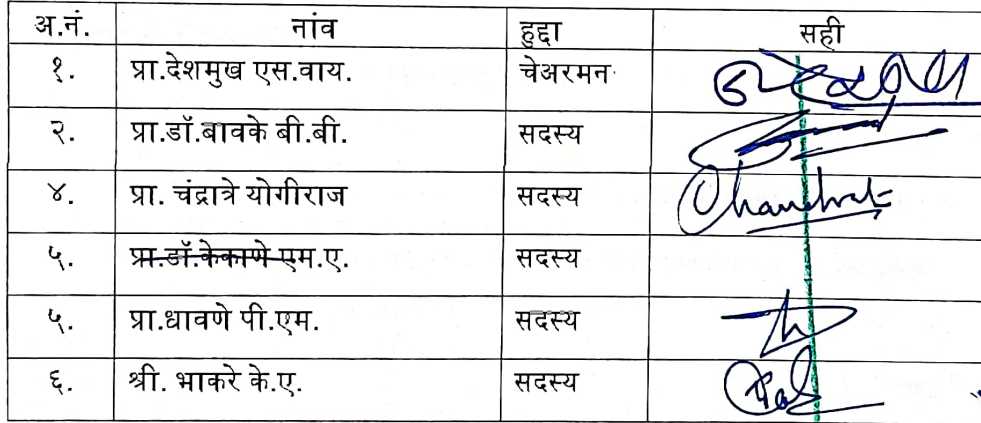 अ.नं. नांव हुद्दा सही
१. प्रा.देशमुख एस.वाय. चेअरमन
२. प्रा.डॉ.बावके बी.बी. सदस्य
४. प्रा. चंद्रात्रे योगीराज सदस्य Chandrat
५. प्रा.डॉ.केकाणे एम.ए. सदस्य
५. प्रा.धावणे पी.एम. सदस्य
६. श्री. भाकरे के.ए. सदस्य